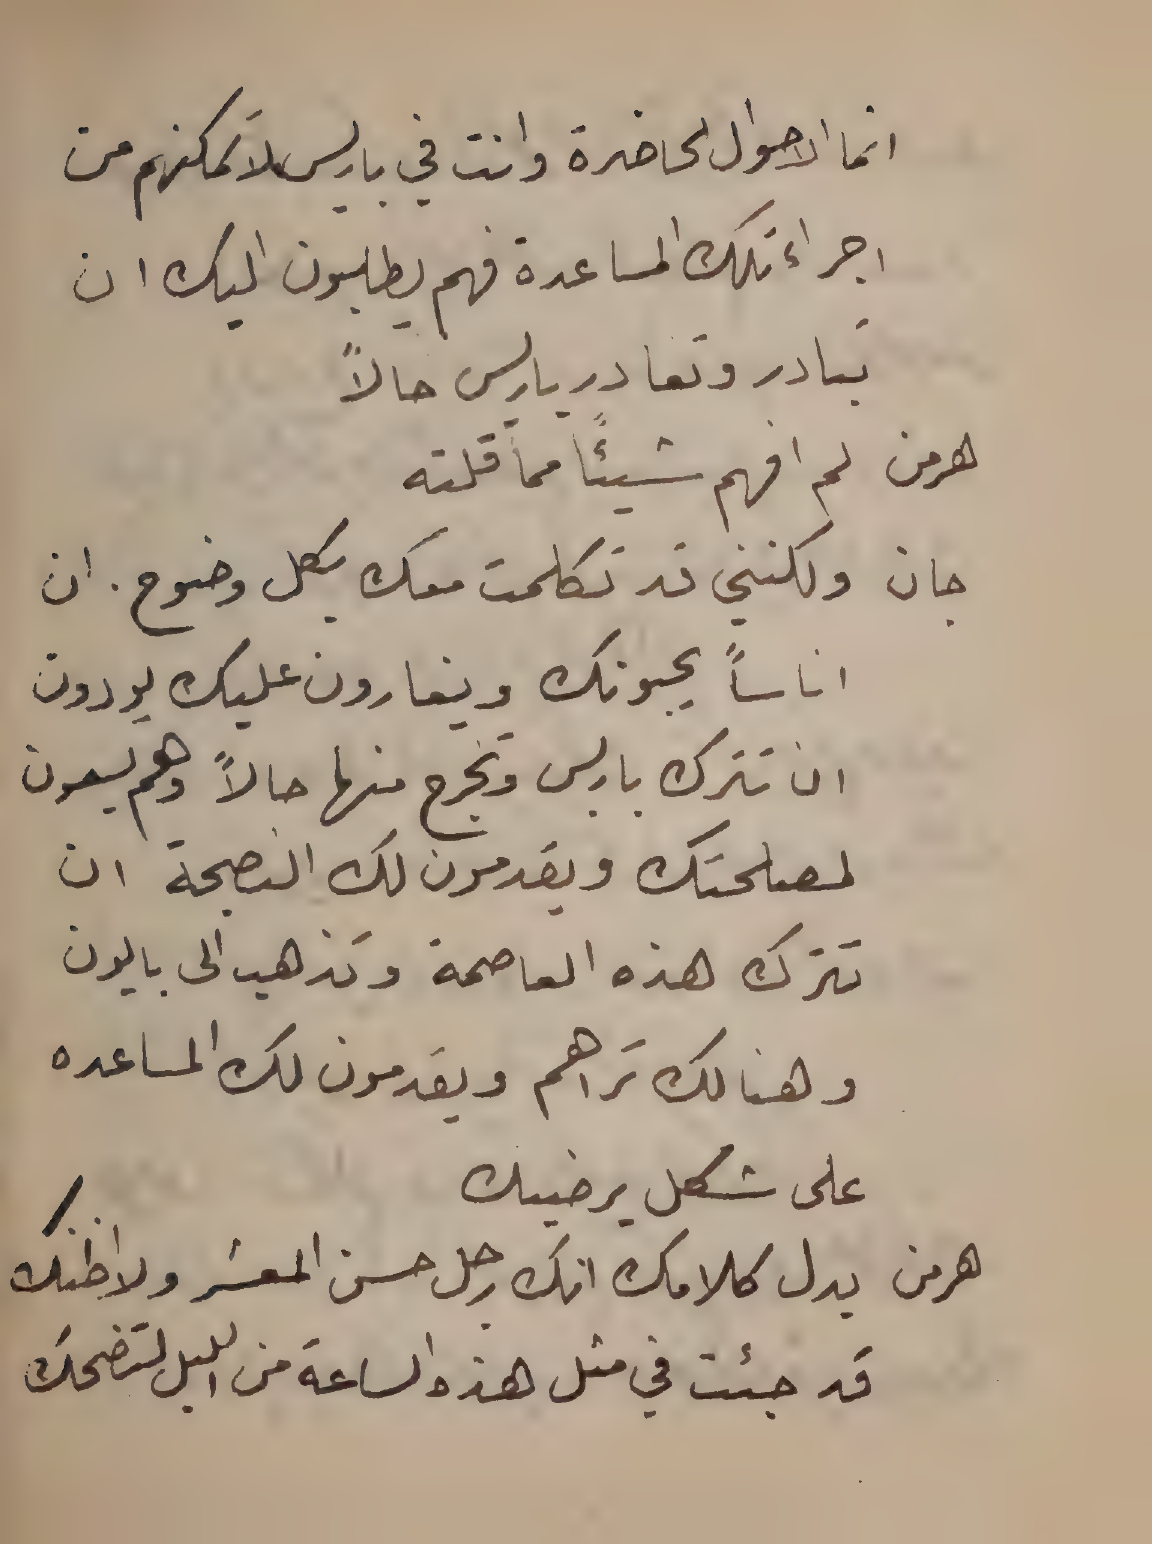 انما الاحوال الحاضرة وانت في باريس لا تمكنهم من
اجراء تلك المساعدة فهم يطلبون اليك ان
تبادر وتغادر باريس حالاً
هرمن لم افهم شيئًا مما قلته
جان ولكنني قد تكلمت معك بكل وضوح . ان
اناساً يحبونك ويغارون عليك يودون
ان تترك باريس وتخرج منها حالاً وهم يسعون
لمصلحتك ويقدمون لك النصيحة ان
تترك هذه العاصمة وتذهب الى بايون
وهنالك تراهم ويقدمون لك المساعده
على شكل يرضيك
هرمن يدل كلامك انك رجل حسن المعشر ولا اظنك
قد جئت في مثل هذه الساعة من الليل لتضحك